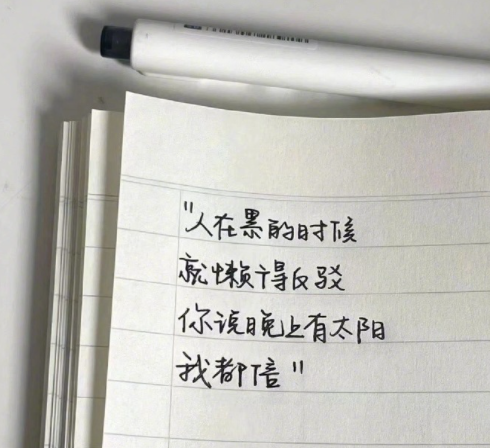 "人在黑的时候
就懒得反驳
你说晚上有太阳
我都信"